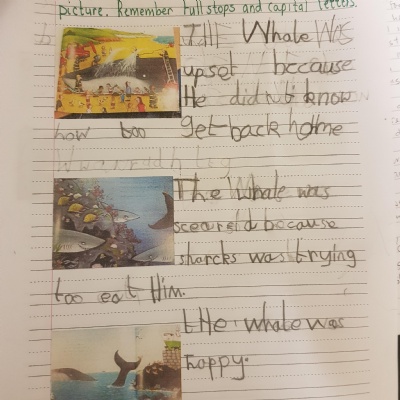 picture. Remember full stops and capital letters.
THe Whale was
upset because
He did n't know
how too get back home
The Whale was
sceared because
sharcks was trying
too eat Him.
tHe whale was
happy.